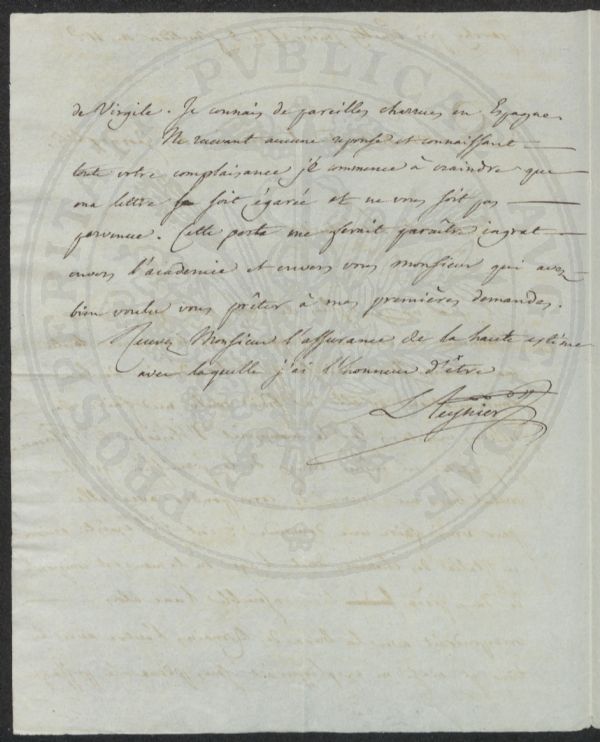 de Virgile. Je connais de pareilles charrues en Espagne.
Ne recevant aucune reponse et connaissant
toute votre complaisance je commence à craindre que
ma lettre se soit égarée et ne vous soit pas
parvenue. Cette perte me ferait paraître ingrat
envers l'académie et envers vous monsieur qui avez
bien voulu vous prêter à mes premières demandes.
Recevez Monsieur l'assurance de la haute estime
avec laquelle j'ai l'honneur d'être
L Reynier
PUBLICAE
PROSPERITATI